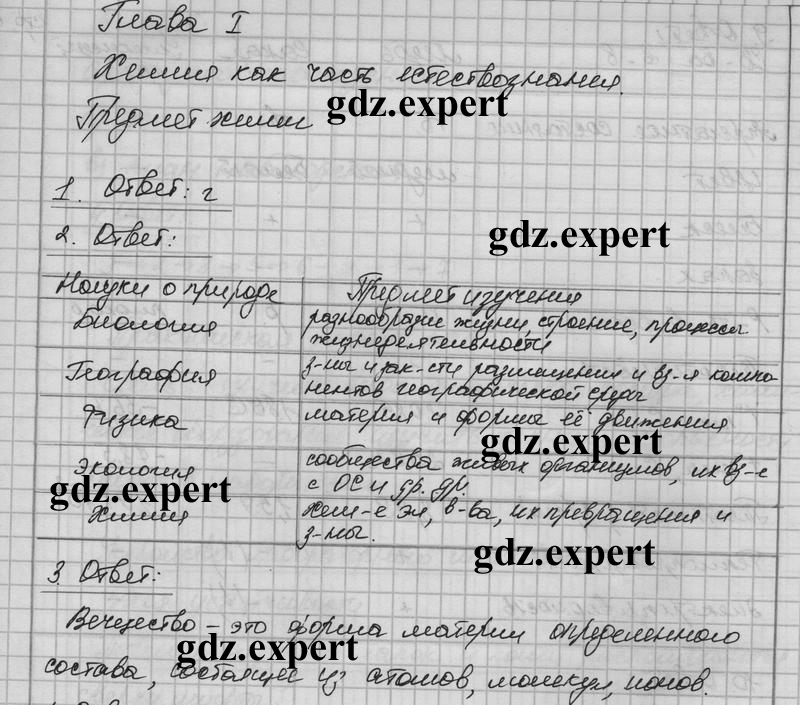 Глава I
Химия как часть естествознания.
gdz.expert
Предмет химии
1. Ответ: г
gdz.expert
2. Ответ:
Науки о природе Предмет изучения
Биология разнообразие жизни, строение, процессы
жизнедеятельности
География з-ны и зак-сти размещения и вз-я компо-
нентов географической среды
Физика материя и формы её движения
gdz.expert
Экология сообщества живых организмов, их вз-е
с ОС и др. др.
gdz.expert
Химия хим-е эл, в-ва, их превращения и
з-ны.
gdz.expert
3. Ответ:
Вещество – это форма материи определенного
gdz.expert
состава, состоящее из атомов, молекул, ионов.